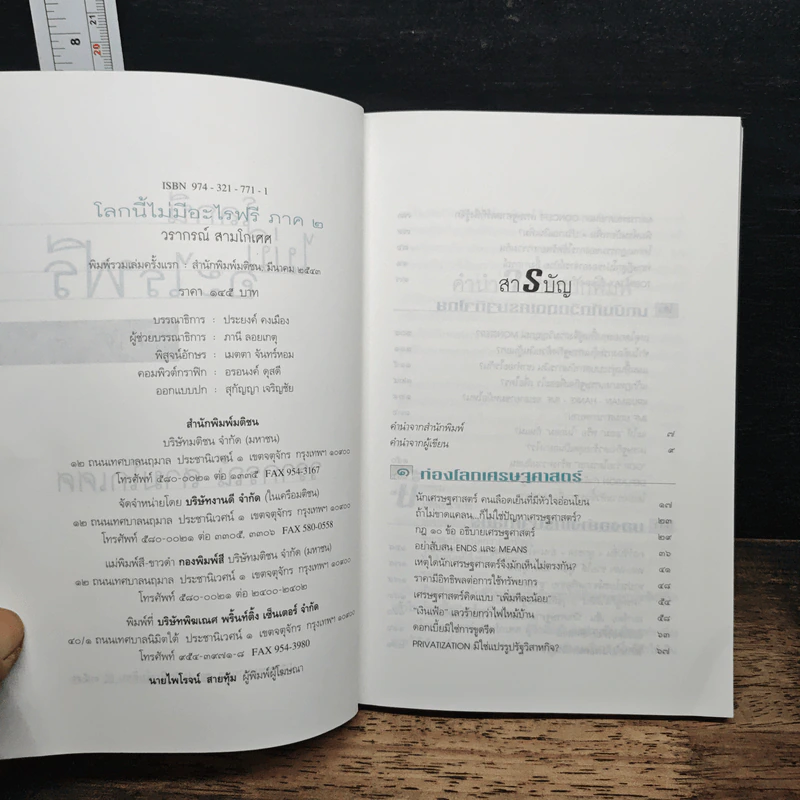 ISBN 974 - 321 - 771 - 1
โลกนี้ไม่มีอะไรฟรี ภาค ๒
วรากรณ์ สามโกเศศ
พิมพ์รวมเล่มครั้งแรก : สำนักพิมพ์มติชน มีนาคม ๒๕๔๓
ราคา ๑๔๕ บาท
บรรณาธิการ : ประยงค์ คงเมือง
ผู้ช่วยบรรณาธิการ : ภานี ลอยเกตุ
พิสูจน์อักษร : เมตตา จันทร์หอม
คอมพิวต์กราฟิก : อรอนงค์ ดุสดี
ออกแบบปก : สุกัญญา เจริญชัย
สำนักพิมพ์มติชน
บริษัทมติชน จำกัด (มหาชน)
๑๒ ถนนเทศบาลนฤมาล ประชานิเวศน์ ๑ เขตจตุจักร กรุงเทพฯ ๑๐๙๐๐
โทรศัพท์ ๕๘๐-๐๐๒๑ ต่อ ๑๓๓๕ FAX 954-3167
จัดจำหน่ายโดย บริษัทงานดี จำกัด (ในเครือมติชน)
๑๒ ถนนเทศบาลนฤมาล ประชานิเวศน์ ๑ เขตจตุจักร กรุงเทพฯ ๑๐๙๐๐
โทรศัพท์ ๕๘๐-๐๐๒๑ ต่อ ๓๓๐๕, ๓๓๐๖ FAX 580-0558
แม่พิมพ์สี-ขาวดำ กองพิมพ์สี บริษัทมติชน จำกัด (มหาชน)
๑๒ ถนนเทศบาลนฤมาล ประชานิเวศน์ ๑ เขตจตุจักร กรุงเทพฯ ๑๐๙๐๐
โทรศัพท์ ๕๘๐-๐๐๒๑ ต่อ ๒๔๐๐-๒๔๐๒
พิมพ์ที่ บริษัทพิฆเณศ พริ้นท์ติ้ง เซ็นเตอร์ จำกัด
๔๐/๑ ถนนเทศบาลนิมิตใต้ ประชานิเวศน์ ๑ เขตจตุจักร กรุงเทพฯ ๑๐๙๐๐
โทรศัพท์ ๙๕๔-๓๙๗๑-๘ FAX 954-3980
นายไพโรจน์ สายทุ้ม ผู้พิมพ์ผู้โฆษณา
สารบัญ
คำนำจากสำนักพิมพ์ ๗
คำนำจากผู้เขียน ๙
๑ ท่องโลกเศรษฐศาสตร์
นักเศรษฐศาสตร์ คนเลือดเย็นที่มีหัวใจอ่อนโยน ๑๗
ถ้าไม่ขาดแคลน...ก็ไม่ใช่ปัญหาเศรษฐศาสตร์? ๒๓
กฎ ๑๐ ข้อ อธิบายเศรษฐศาสตร์ ๒๙
อย่าสับสน ENDS และ MEANS ๓๖
เหตุใดนักเศรษฐศาสตร์จึงมักเห็นไม่ตรงกัน? ๔๑
ราคามีอิทธิพลต่อการใช้ทรัพยากร ๔๘
เศรษฐศาสตร์คิดแบบ "เพิ่มทีละน้อย" ๕๔
"เงินเฟ้อ" เลวร้ายกว่าไฟไหม้บ้าน ๕๘
ดอกเบี้ยมิใช่การขูดรีด ๖๓
PRIVATIZATION มิใช่แปรรูปรัฐวิสาหกิจ? ๖๗
8
20
21